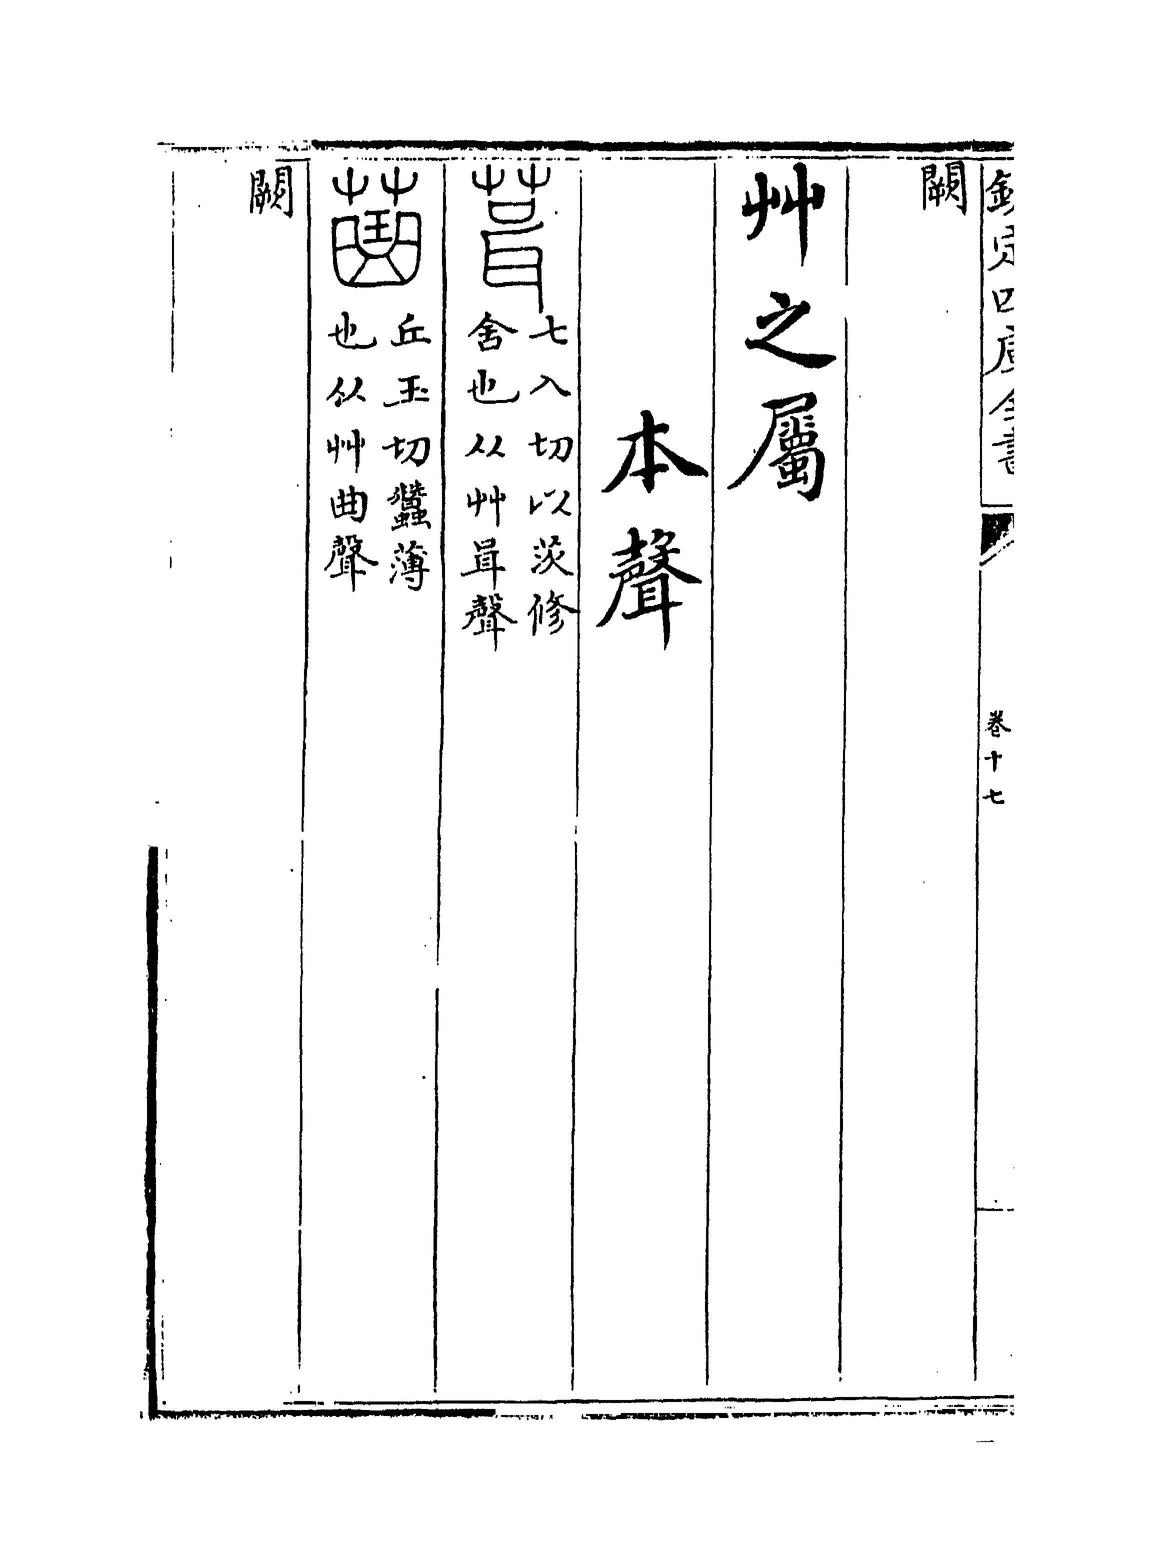 欽定四庫全書
卷十七
闕
艸之屬
本聲
葺
七入切以茨修
舍也从艸咠聲
丘玉切蠶薄
也从艸曲聲
闕